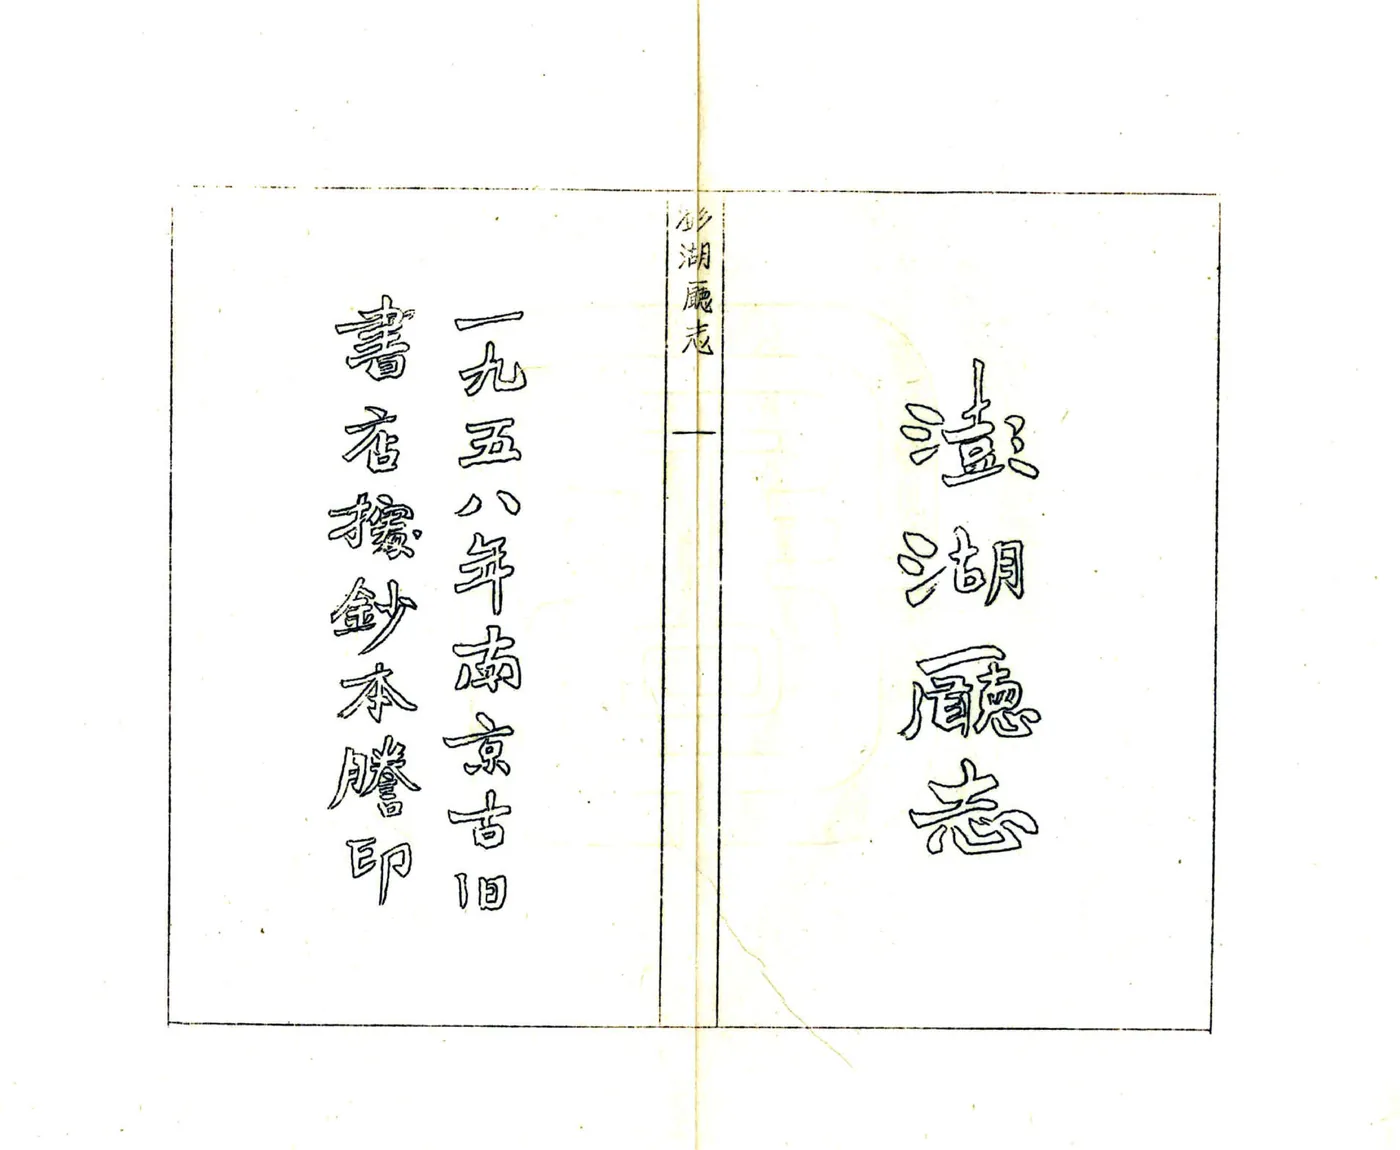 澎湖廳志
澎湖廳志
一
一九五八年南京古旧
書店據鈔本謄印